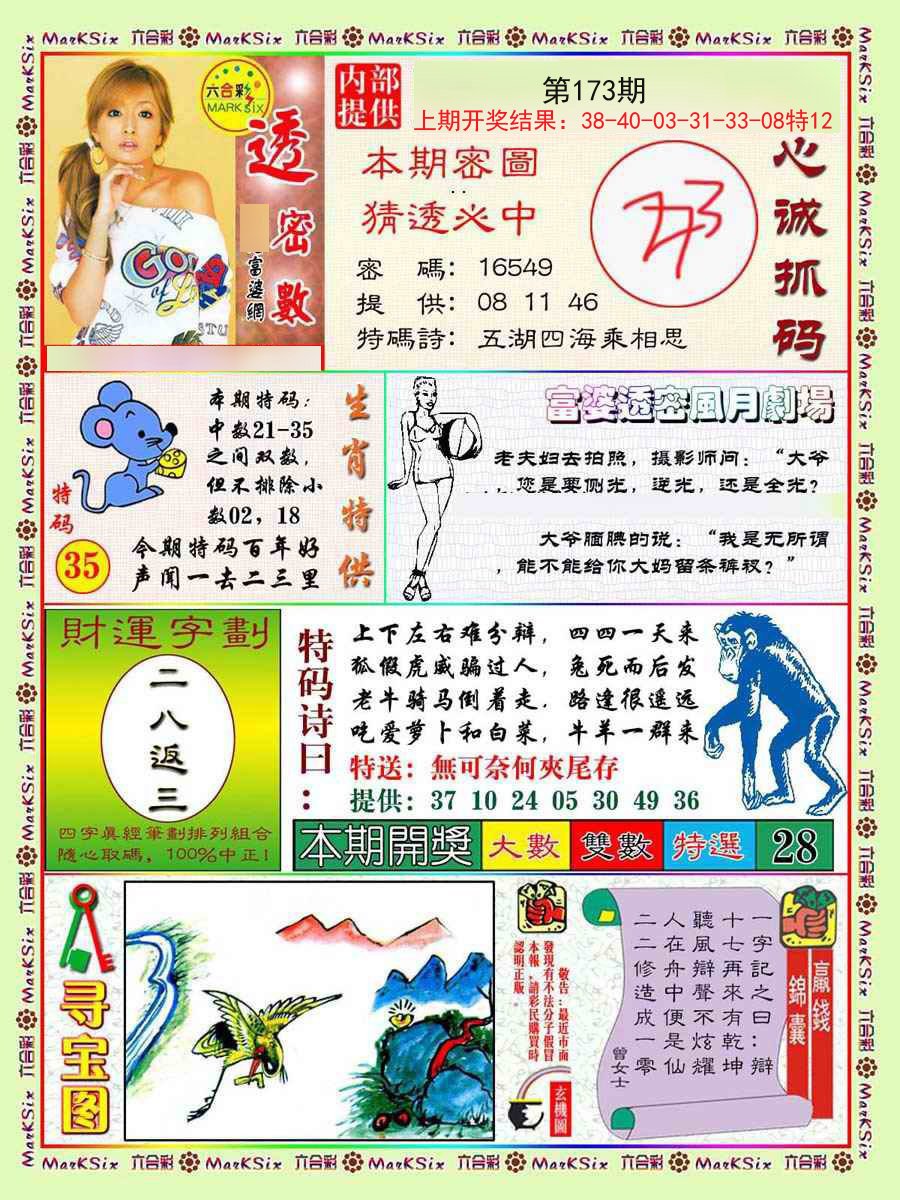 MarKSix 六合彩 MarKSix 六合彩 MarKSix 六合彩 MarKSix 六合彩 MarKSix 六合彩
六合彩
MARK SIX
透密數
富婆網
内部
提供
第173期
上期开奖结果：38-40-03-31-33-08特12
本期密圖
猜透必中
密　碼：16549
提　供：08 11 46
特碼詩：五湖四海乘相思
心诚抓码
本期特码：
中数21-35
之间双数，
但不排除小
数02，18
今期特码百年好
声闻一去二三里
特码
35
生肖特供
富婆透密風月劇場
老夫妇去拍照，摄影师问：“大爷
，您是要侧光，逆光，还是全光？
大爷腼腆的说：“我是无所谓
，能不能给你大妈留条裤衩？”
財運字劃
二八返三
四字真經筆劃排列組合
隨心取碼，100%中正！
特码诗曰：
上下左右难分辩，四四一天来
狐假虎威骗过人，兔死而后发
老牛骑马倒着走．路逢很遥远
吃爱萝卜和白菜，牛羊一群来
特送：無可奈何夾尾存
提供：37 10 24 05 30 49 36
本期開獎 大數 雙數 特選 28
寻宝图
敬告：最近市面
發現有不法分子假冒
本報，請彩民購買時
認明正版。
玄機圖
一字記之曰：辯
十七再來有乾坤
聽風辯聲不炫耀
人在舟中便是仙
二二修造成一零
曾女士
贏錢
錦囊
MarKSix 六合彩 MarKSix 六合彩 MarKSix 六合彩 MarKSix 六合彩 MarKSix 六合彩